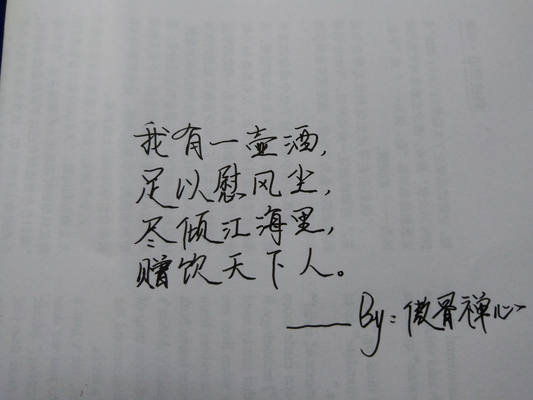 我有一壶酒，
足以慰风尘，
尽倾江海里，
赠饮天下人。
——By：傲骨禅心